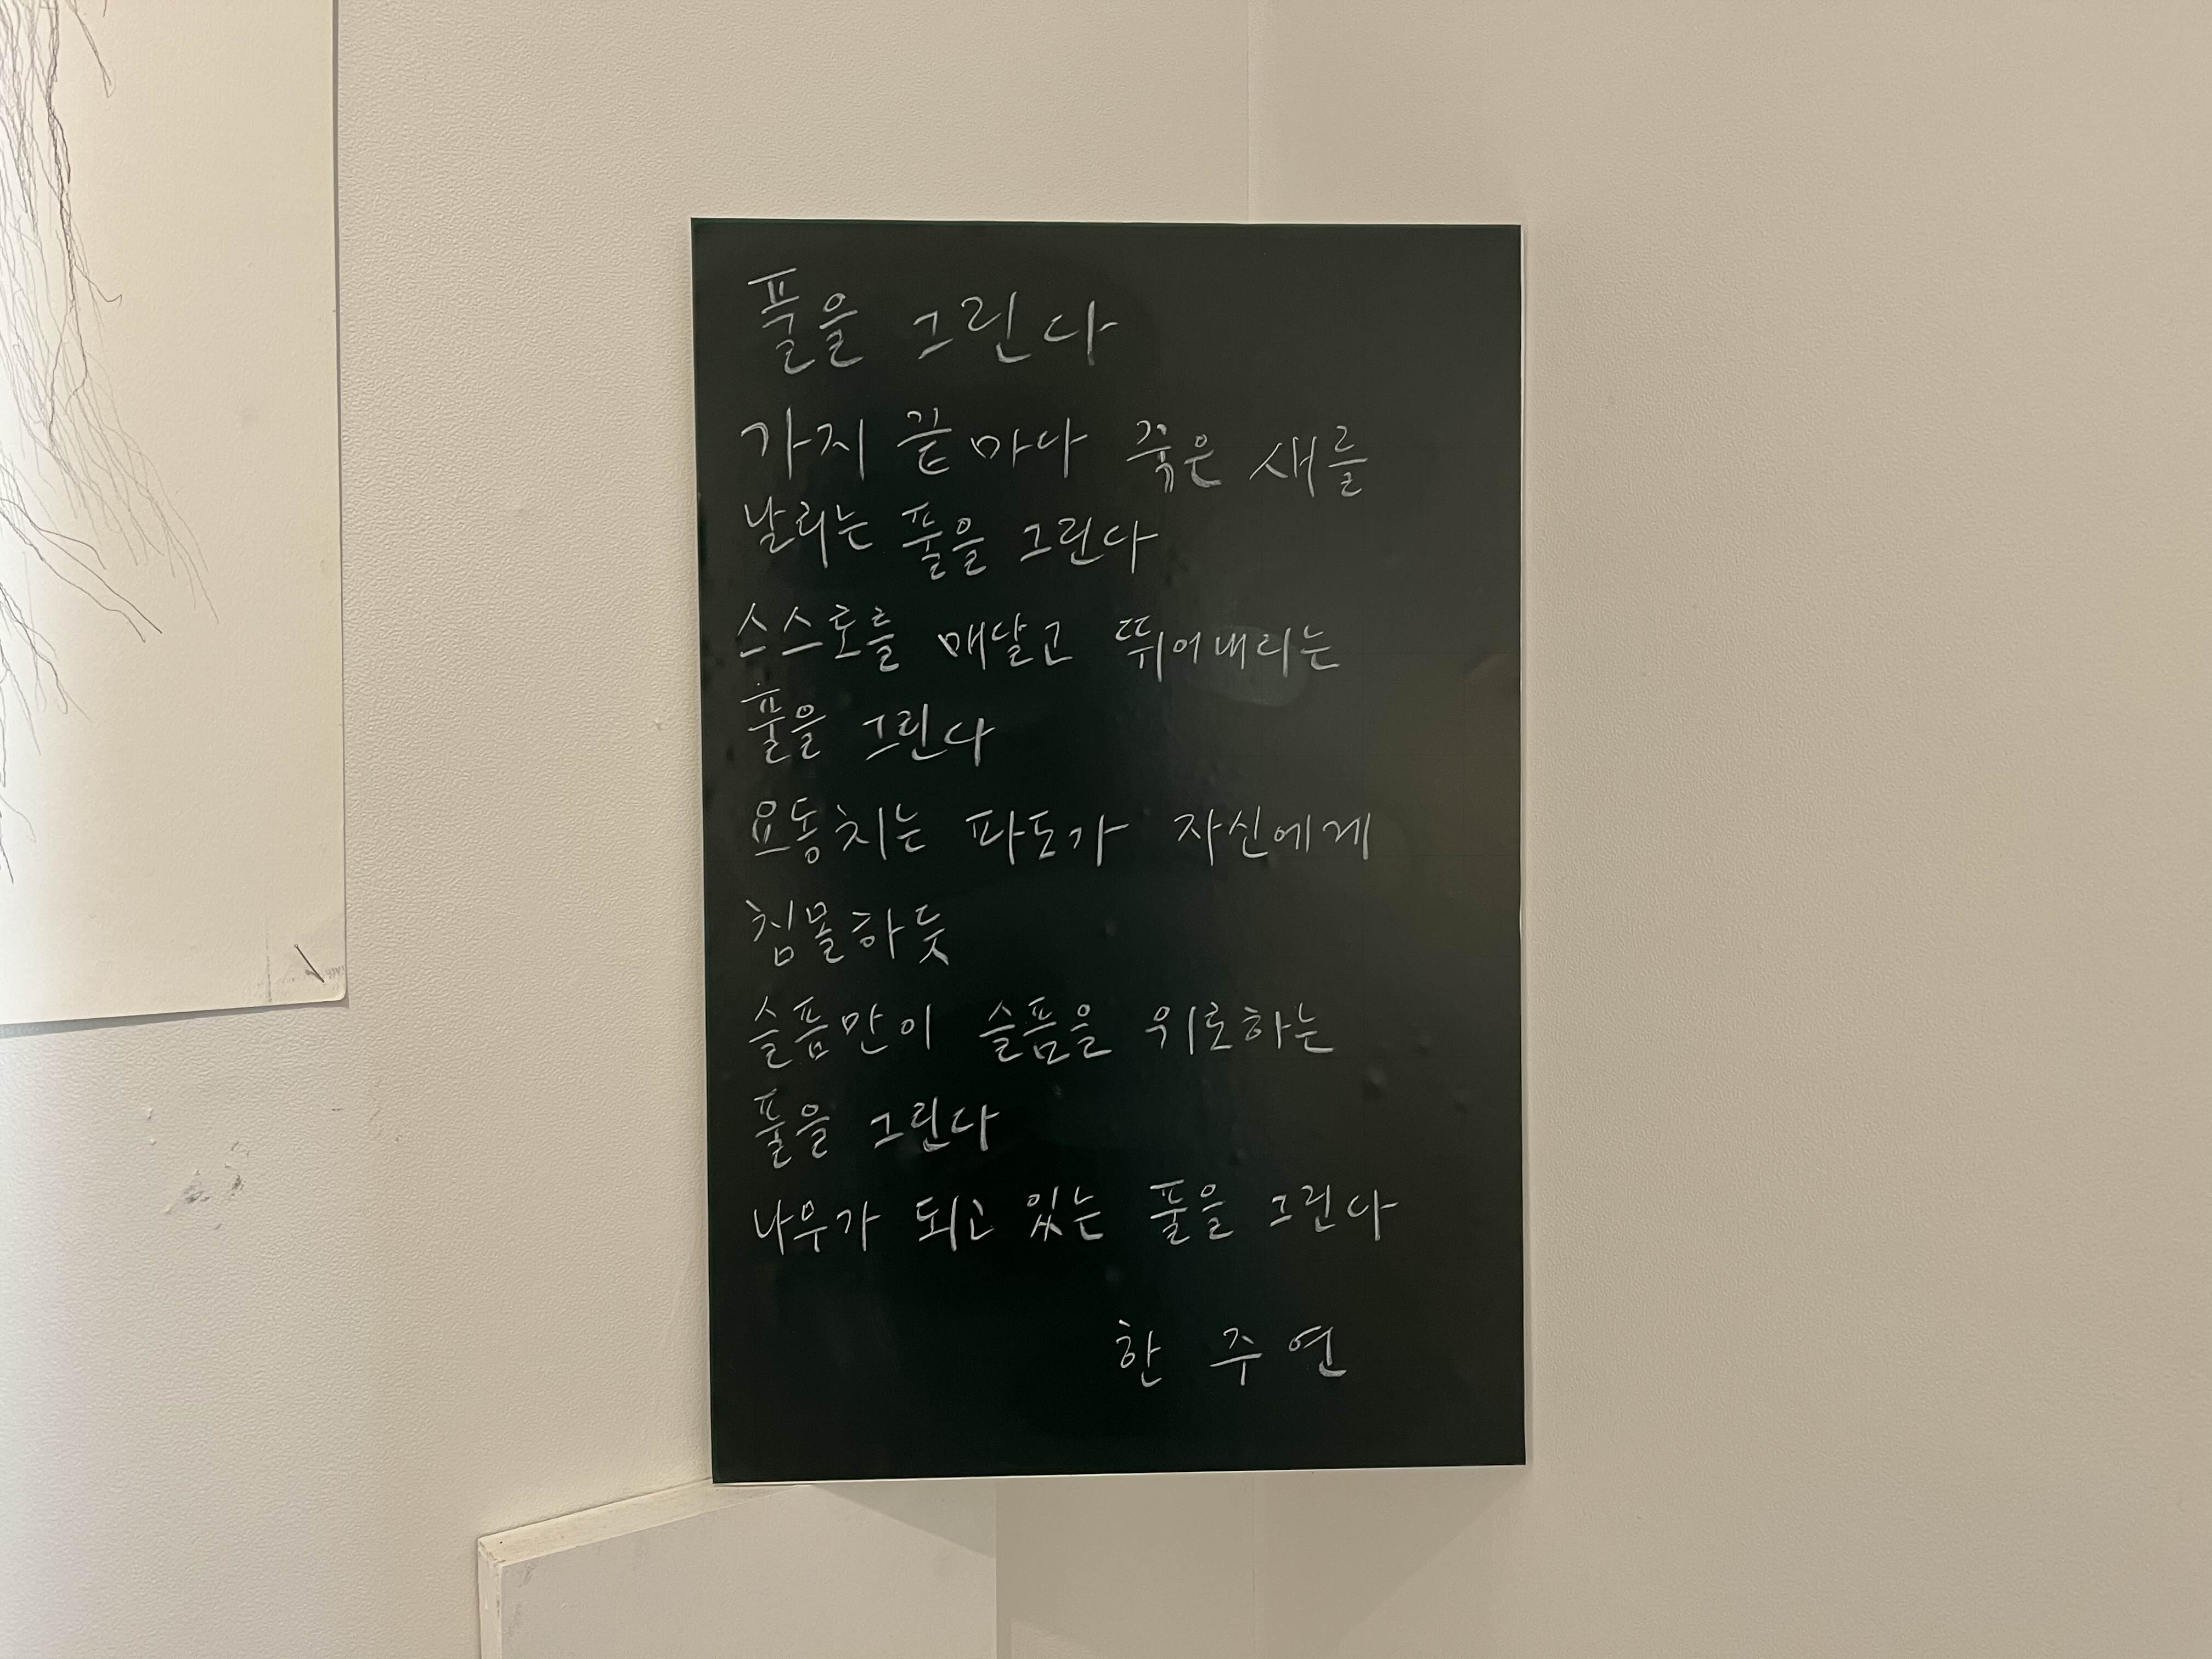 풀을 그린다
가지 끝마다 죽은 새를
날리는 풀을 그린다
스스로를 매달고 뛰어내리는
풀을 그린다
요동치는 파도가 자신에게
침몰하듯
슬픔만이 슬픔을 위로하는
풀을 그린다
나무가 되고 있는 풀을 그린다
한 주 연